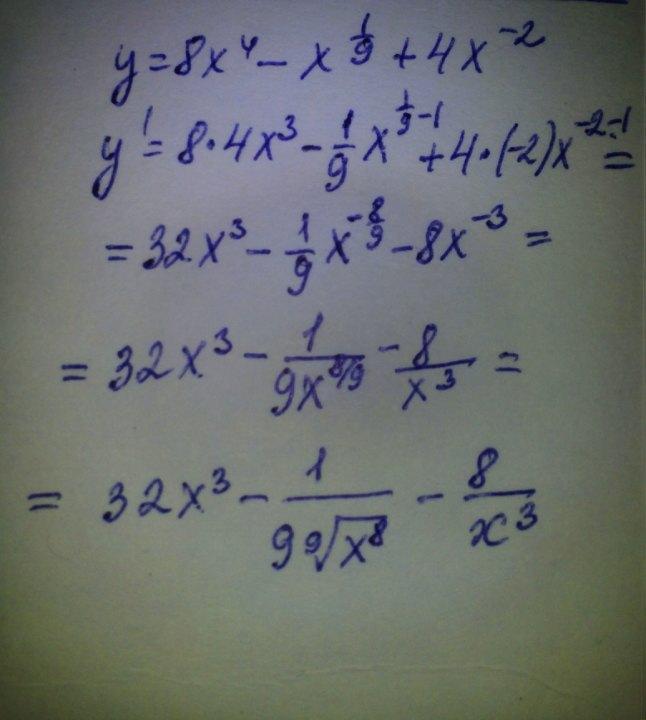 y = 8x⁴ - x^{1/9} + 4x⁻²
y' = 8·4x³ - \frac{1}{9}x^{\frac{1}{9}-1} + 4·(-2)x^{-2-1} =
= 32x³ - \frac{1}{9}x^{-\frac{8}{9}} - 8x⁻³ =
= 32x³ - \frac{1}{9x^{8/9}} - \frac{8}{x³} =
= 32x³ - \frac{1}{9\sqrt[9]{x⁸}} - \frac{8}{x³}